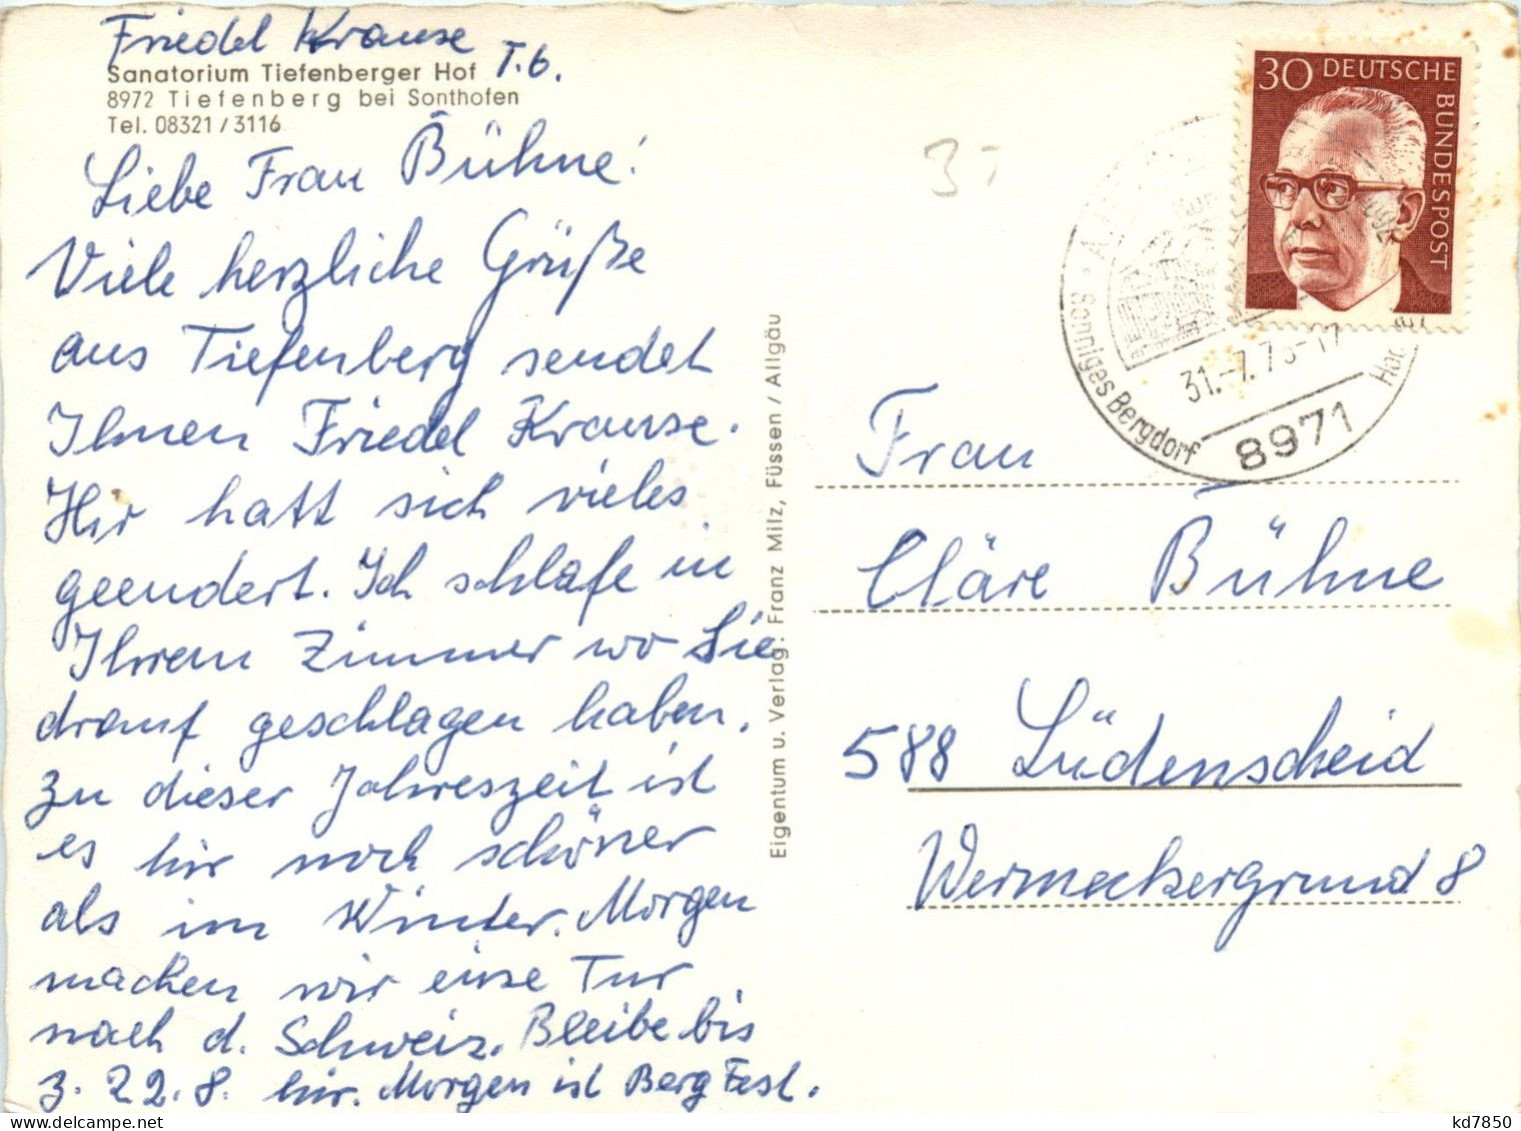 Friedel Krause
T.6.
Sanatorium Tiefenberger Hof
8972 Tiefenberg bei Sonthofen
Tel. 08321/3116
Liebe Frau Bühne!
Viele herzliche Grüße
aus Tiefenberg sendet
Ihnen Friedel Krause.
Hir hatt sich vieles
geendert. Ich schlafe in
Ihrem Zimmer wo Sie
drauf geschlagen haben.
Zu dieser Jahreszeit ist
es hir noch schöner
als im Winter. Morgen
machen wir eine Tur
nach d. Schweiz. Bleibe bis
z. 22.8. hir. Morgen ist Berg Fest.
Eigentum u. Verlag: Franz Milz, Füssen / Allgäu
3,-
30 DEUTSCHE
BUNDESPOST
Sonniges Bergdorf
31.-7.73-17
8971
Frau
Cläre Bühne
588 Lüdenscheid
Wermeckergrund 8
kd7850